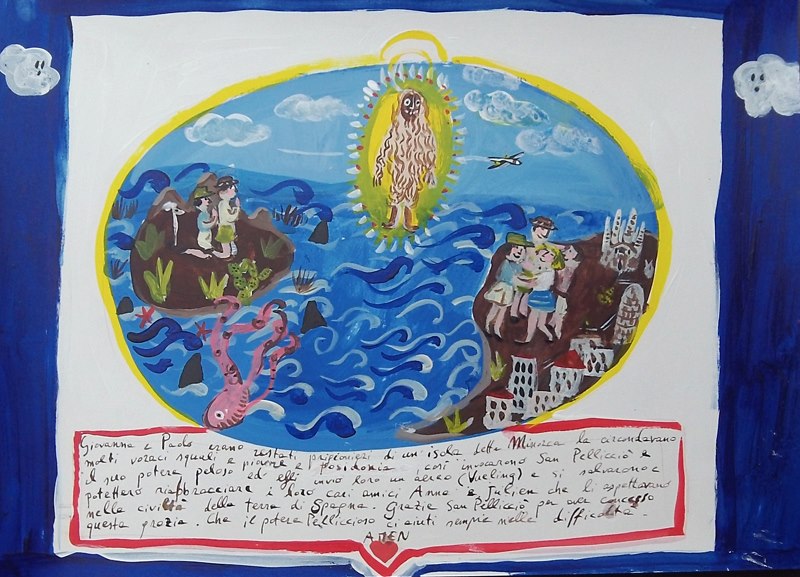 Giovanna e Paolo erano restati prigionieri di un'isola detta Minorca la circondavano
molti voraci squali e piovre e posidonia così invocarono San Pelliccio e
il suo potere peloso ed elli inviò loro un aereo (Vueling) e si salvarono e
potettero riabbracciare i loro cari amici Anna e Julien che li aspettavano
nella civiltà della terra di Spagna. Grazie San Pelliccio per aver concesso
questa grazia. Che il potere Pelliccioso ci aiuti sempre nelle difficoltà.
AMEN